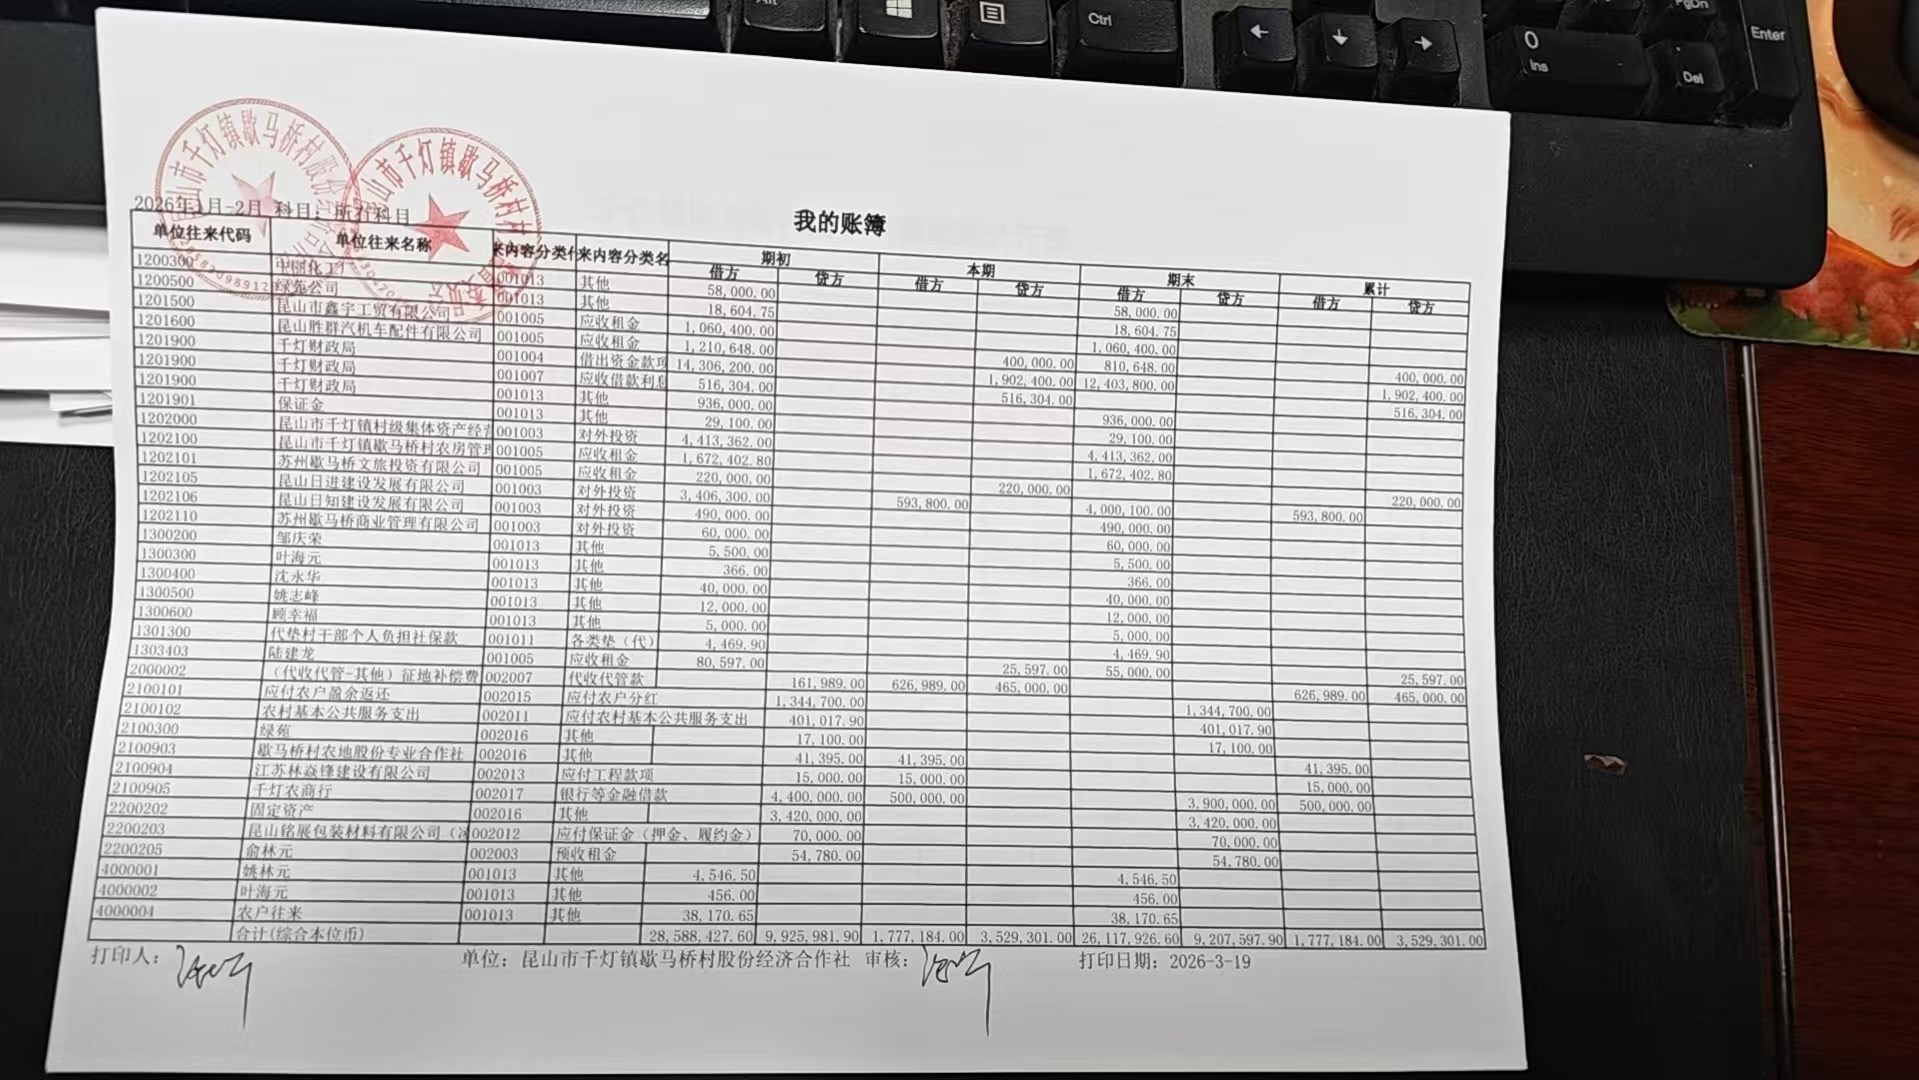 昆山市千灯镇歇马桥村股份
昆山市千灯镇歇马桥村村
我的账簿
2026年1月-2月 科目：所有科目
单位往来代码 单位往来名称 来内容分类代 来内容分类名 期初 本期 期末 累计
借方 贷方 借方 贷方 借方 贷方 借方 贷方
1200300 中丽化工厂 001013 其他 58,000.00 58,000.00
1200500 绿苑公司 001013 其他 18,604.75 18,604.75
1201500 昆山市鑫宇工贸有限公司 001005 应收租金 1,060,400.00 1,060,400.00
1201600 昆山胜群汽机车配件有限公司 001005 应收租金 1,210,648.00 400,000.00 810,648.00 400,000.00
1201900 千灯财政局 001004 借出资金款项 14,306,200.00 1,902,400.00 12,403,800.00 1,902,400.00
1201900 千灯财政局 001007 应收借款利息 516,304.00 516,304.00 516,304.00
1201900 千灯财政局 001013 其他 936,000.00 936,000.00
1201901 保证金 001013 其他 29,100.00 29,100.00
1202000 昆山市千灯镇村级集体资产经营 001003 对外投资 4,413,362.00 4,413,362.00
1202100 昆山市千灯镇歇马桥村农房管理 001005 应收租金 1,672,402.80 1,672,402.80
1202101 苏州歇马桥文旅投资有限公司 001005 应收租金 220,000.00 220,000.00 220,000.00
1202105 昆山日进建设发展有限公司 001003 对外投资 3,406,300.00 593,800.00 4,000,100.00 593,800.00
1202106 昆山日知建设发展有限公司 001003 对外投资 490,000.00 490,000.00
1202110 苏州歇马桥商业管理有限公司 001003 对外投资 60,000.00 60,000.00
1300200 邹庆荣 001013 其他 5,500.00 5,500.00
1300300 叶海元 001013 其他 366.00 366.00
1300400 沈永华 001013 其他 40,000.00 40,000.00
1300500 姚志峰 001013 其他 12,000.00 12,000.00
1300600 顾幸福 001013 其他 5,000.00 5,000.00
1301300 代垫村干部个人负担社保款 001011 各类垫（代） 4,469.90 4,469.90
1303403 陆建龙 001005 应收租金 80,597.00 25,597.00 55,000.00 25,597.00
2000002 （代收代管-其他）征地补偿费 002007 代收代管款 161,989.00 626,989.00 465,000.00 626,989.00 465,000.00
2100101 应付农户盈余返还 002015 应付农户分红 1,344,700.00 1,344,700.00
2100102 农村基本公共服务支出 002011 应付农村基本公共服务支出 401,017.90 401,017.90
2100300 绿苑 002016 其他 17,100.00 17,100.00
2100903 歇马桥村农地股份专业合作社 002016 其他 41,395.00 41,395.00 41,395.00
2100904 江苏林焱锋建设有限公司 002013 应付工程款项 15,000.00 15,000.00 15,000.00
2100905 千灯农商行 002017 银行等金融借款 4,400,000.00 500,000.00 3,900,000.00 500,000.00
2200202 固定资产 002016 其他 3,420,000.00 3,420,000.00
2200203 昆山铭展包装材料有限公司（ 002012 应付保证金（押金、履约金） 70,000.00 70,000.00
2200205 俞林元 002003 预收租金 54,780.00 54,780.00
4000001 姚林元 001013 其他 4,546.50 4,546.50
4000002 叶海元 001013 其他 456.00 456.00
4000004 农户往来 001013 其他 38,170.65 38,170.65
合计(综合本位币) 28,588,427.60 9,925,981.90 1,777,184.00 3,529,301.00 26,117,926.60 9,207,597.90 1,777,184.00 3,529,301.00
打印人： 单位：昆山市千灯镇歇马桥村股份经济合作社 审核： 打印日期：2026-3-19
Ctrl
0
Ins
PgDn
Del
Enter